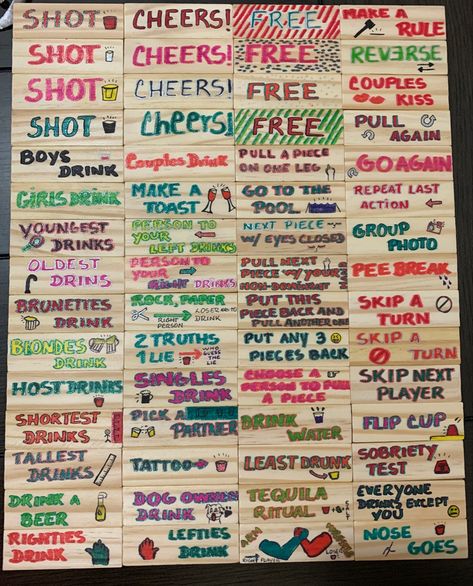 SHOT
CHEERS!
FREE
MAKE A
RULE
SHOT
CHEERS!
FREE
REVERSE
SHOT
CHEERS!
FREE
COUPLES
KISS
SHOT
Cheers!
FREE
PULL
AGAIN
BOYS
DRINK
Couples Drink
PULL A PIECE
ON ONE LEG
GO AGAIN
GIRLS DRINK
MAKE A
TOAST
GO TO THE
POOL
REPEAT LAST
ACTION
YOUNGEST
DRINKS
PERSON TO
YOUR
LEFT DRINKS
NEXT PIECE
W/ EYES CLOSED
GROUP
PHOTO
OLDEST
DRINS
PERSON TO
YOUR
RIGHT DRINKS
PULL NEXT
PIECE W/ YOUR
NON-DOMINANT
PEE BREAK
BRUNETTES
DRINK
ROCK, PAPER
RIGHT
PERSON
LOSER
DRINK
PUT THIS
PIECE BACK AND
PULL ANOTHER ONE
SKIP A
TURN
BLONDES
DRINK
2 TRUTHS
1 LIE
GUESS
THE
LIE
PUT ANY 3
PIECES BACK
SKIP A
TURN
HOST DRINKS
SINGLES
DRINK
CHOOSE A
PERSON TO PULL
A PIECE
SKIP NEXT
PLAYER
SHORTEST
DRINKS
PICK A
PARTNER
DRINK
WATER
FLIP CUP
TALLEST
DRINKS
TATTOO
LEAST DRUNK
SOBRIETY
TEST
DRINK A
BEER
DOG OWNERS
DRINK
TEQUILA
RITUAL
EVERYONE
DRINKS EXCEPT
YOU
RIGHTIES
DRINK
LEFTIES
DRINK
ARM
RIGHT PLAYER
NOSE
GOES